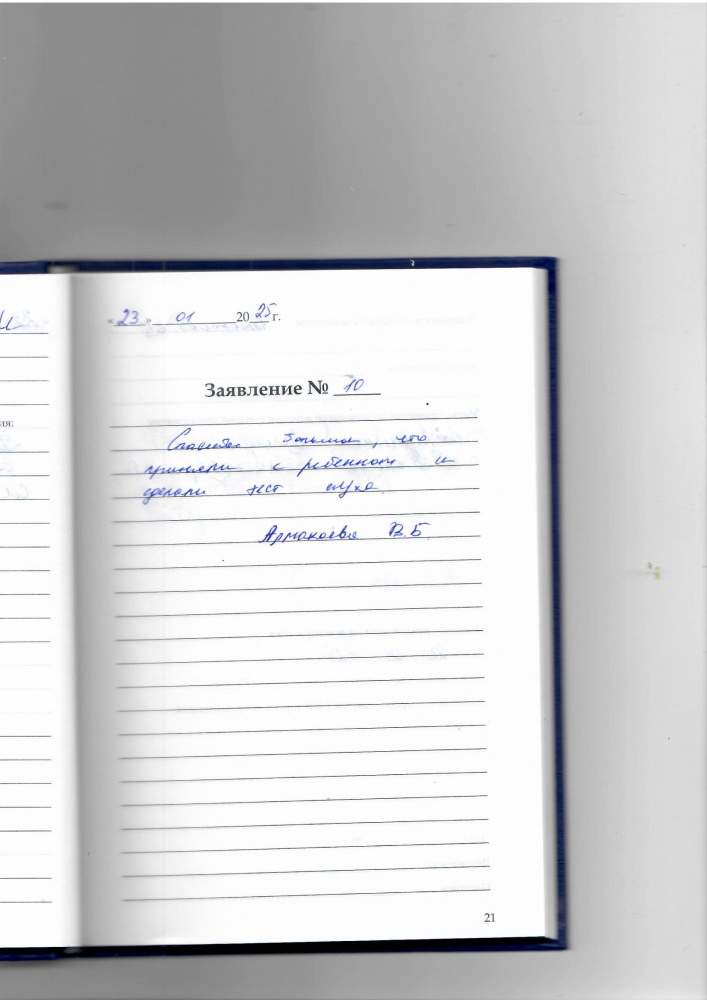 « 23 » 01 20 25 г.
Заявление № 10
Спасибо большое, что
приняли с ребенком и
сделали тест слуха.
Армакаева В.Б.
ия:
21